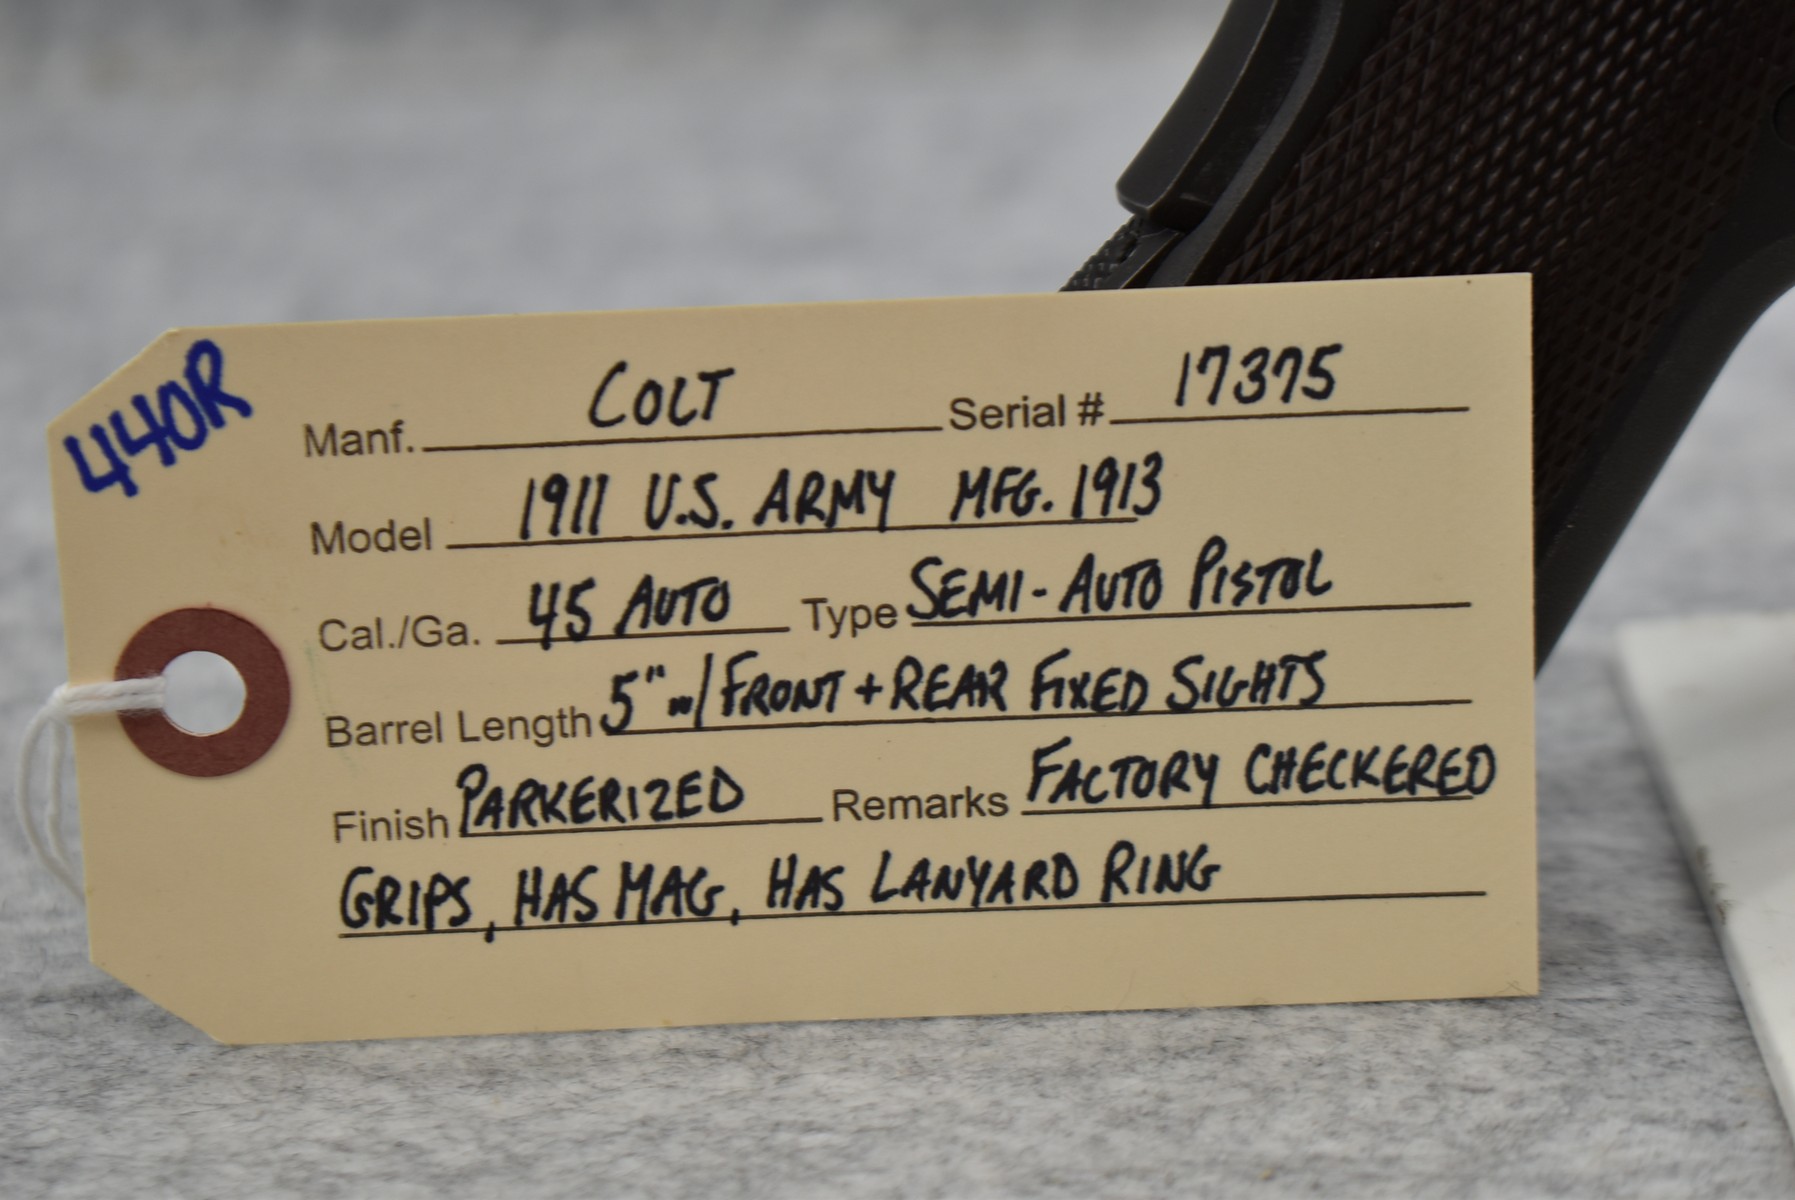 440R
Manf. COLT Serial # 17375
Model 1911 U.S. ARMY MFG. 1913
Cal./Ga. 45 AUTO Type SEMI-AUTO PISTOL
Barrel Length 5" w/ FRONT + REAR FIXED SIGHTS
Finish PARKERIZED Remarks FACTORY CHECKERED
GRIPS, HAS MAG, HAS LANYARD RING